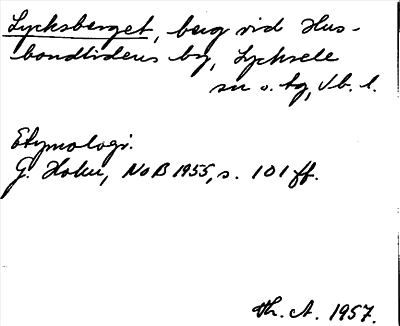 Lycksberget, berg vid Hus-
bondlidens by, Lycksele
sn o. tg, Vb. l.
Etymologi.
G. Holm, NoB 1955, s. 101 ff.
Th. A. 1957.